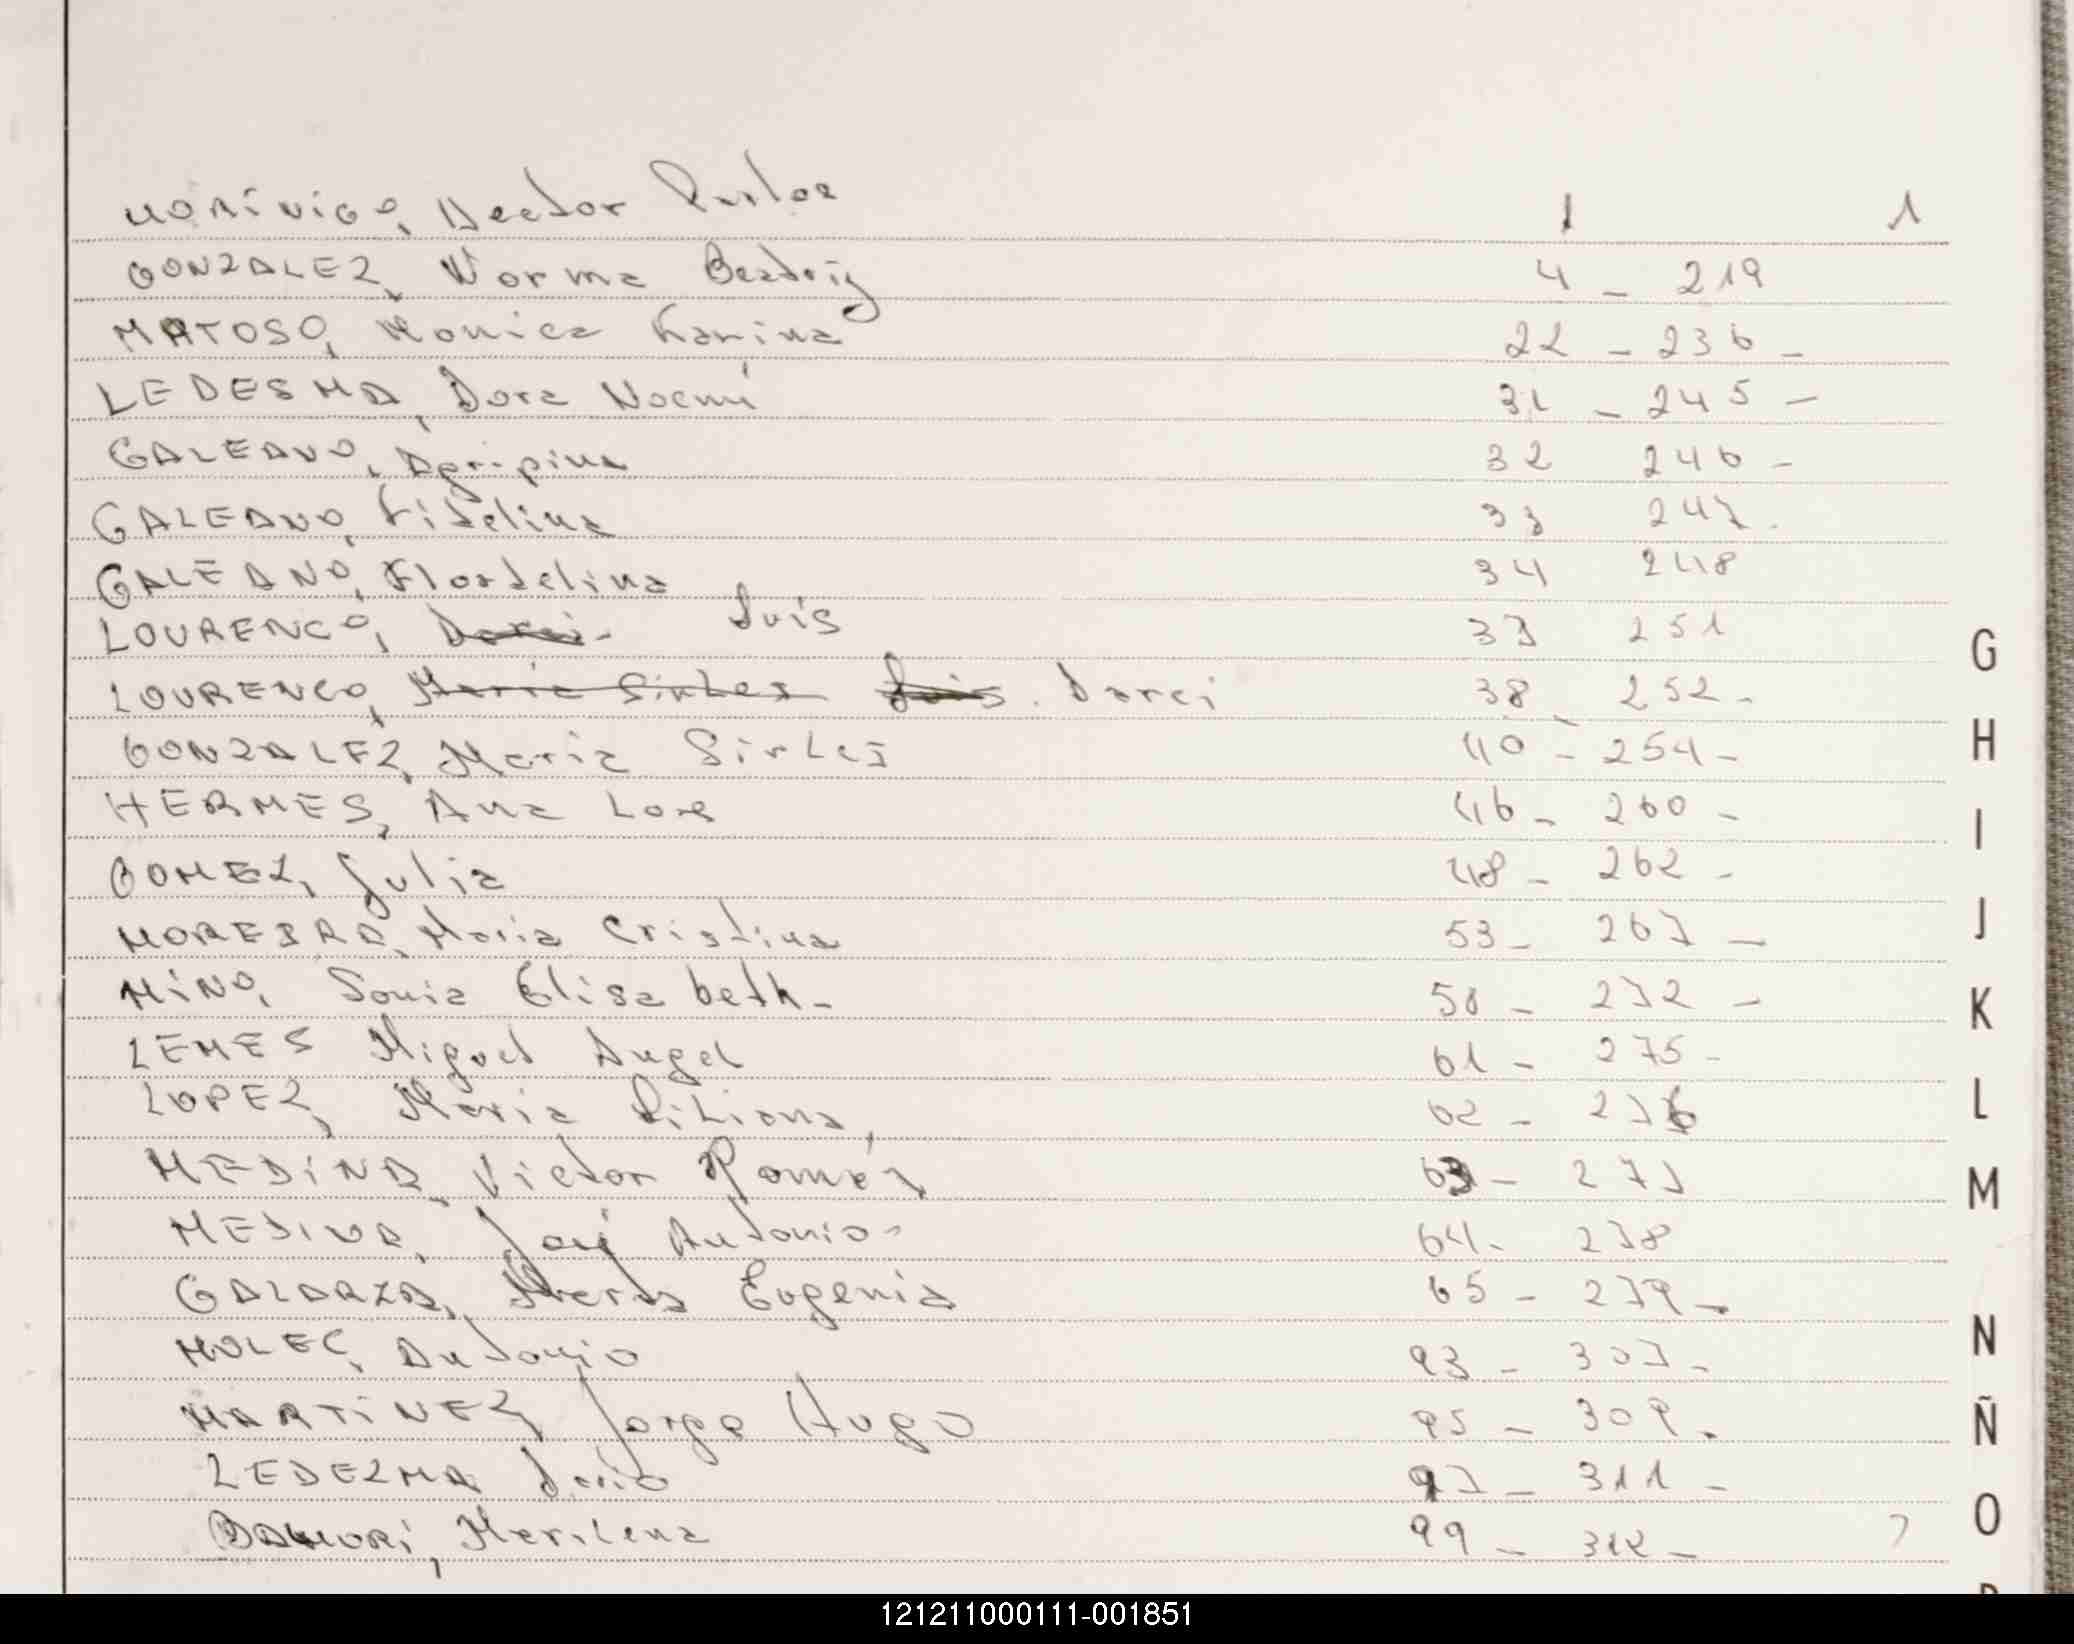 MORÍNIGO, Hector Carlos 1 1
GONZALEZ, Norma Beatriz 4 - 219
MATOSO, Monica Karina 22 - 236 -
LEDESMA, Dora Noemí 31 - 245 -
GALEANO, Agripina 32 246 -
GALEANO, Fidelina 33 247 -
GALEANO, Flordelina 34 248
LOURENCO, Darci - Luis 37 251
LOURENCO, Maria Sirles Luis. Darci 38 - 252 -
GONZALEZ, Maria Sirles 40 - 254 -
HERMES, Ana Lore 46 - 260 -
GOMEZ, Julia 48 - 262 -
MOREIRA, Maria Cristina 53 - 267 -
MIÑO, Sonia Elisabeth - 58 - 272 -
LEMES Miguel Angel 61 - 275 -
LOPEZ, Maria Liliana, 62 - 276
MEDINA, Victor Ramón 63 - 277
MEDINA, José Antonio - 64 - 278
GALARZA, Maria Eugenia 65 - 279 -
MOLEC, Antonio 93 - 307 -
MARTINEZ, Jorge Hugo 95 - 309 -
LEDEZMA Dario 97 - 311 -
Marilena 99 - 312 - ?
G
H
I
J
K
L
M
N
Ñ
O
121211000111-001851